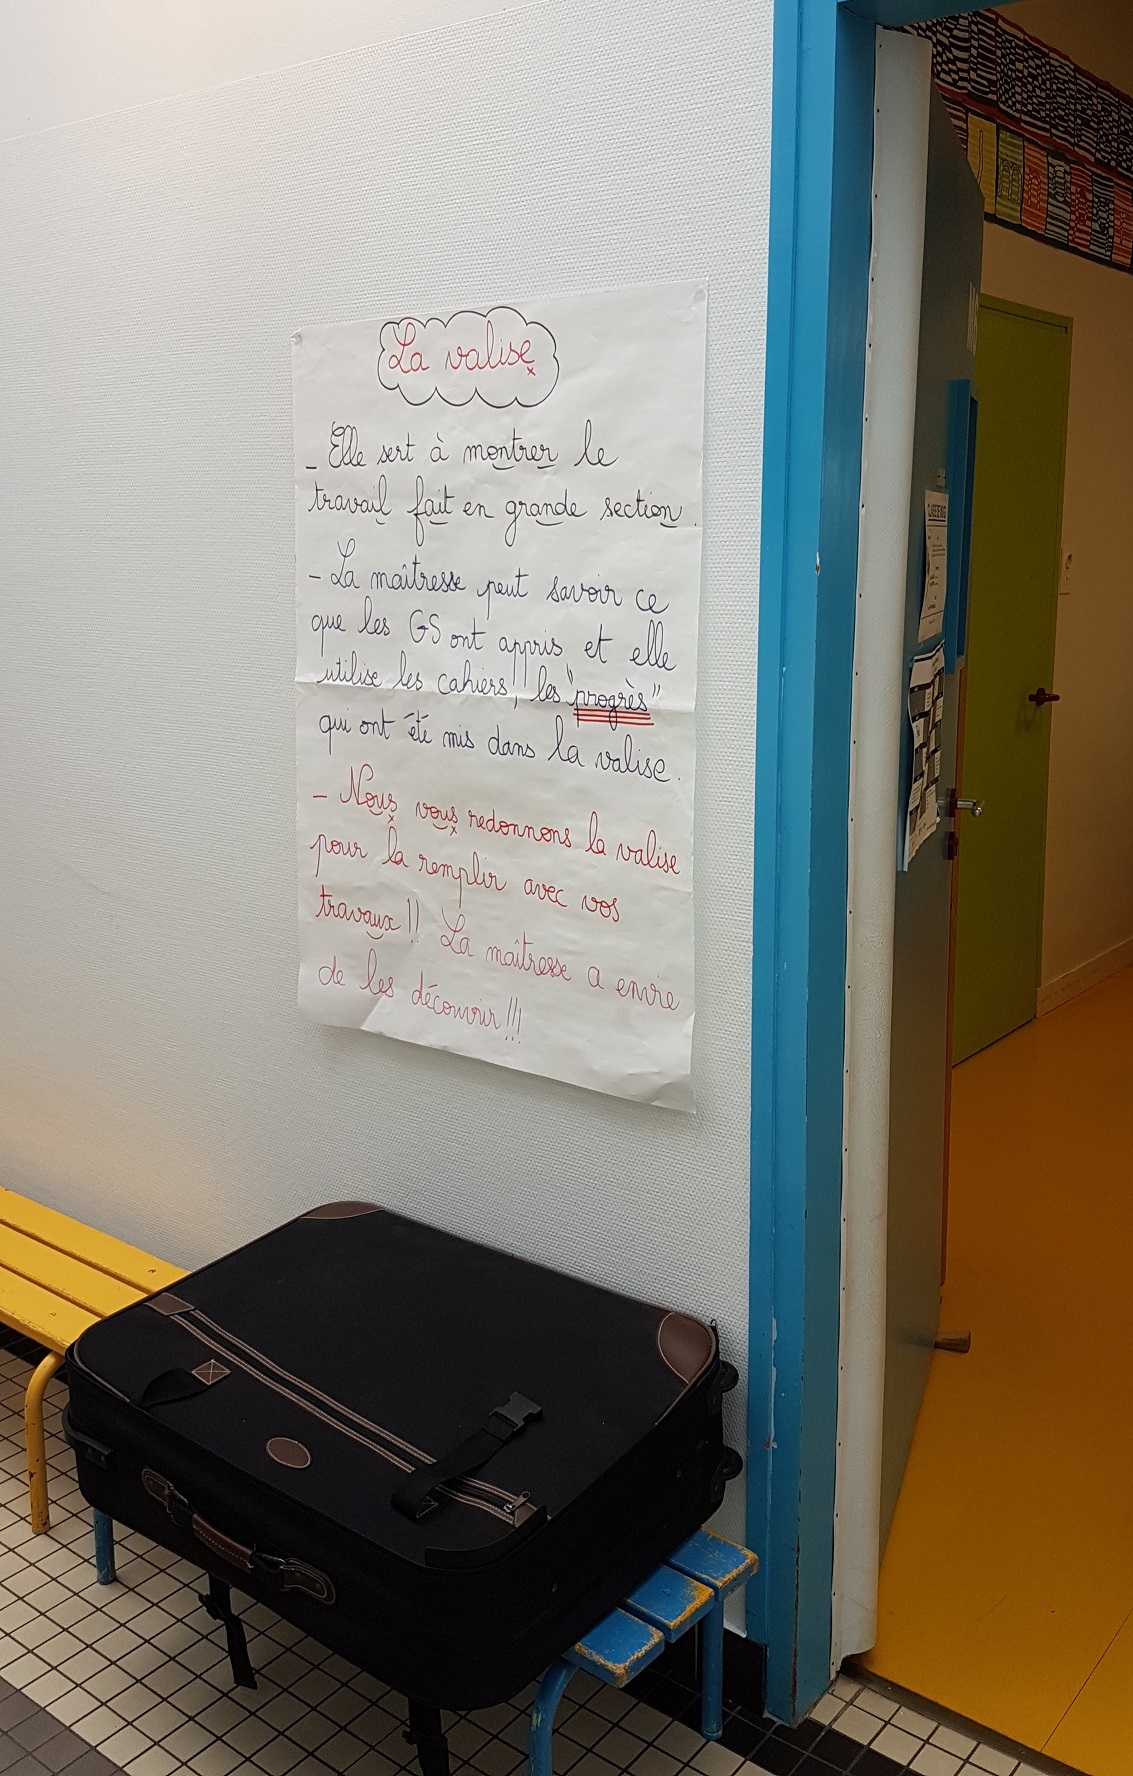 La valise
- Elle sert à montrer le
travail fait en grande section.
- La maîtresse peut savoir ce
que les GS ont appris et elle
utilise les cahiers, les "progrès"
qui ont été mis dans la valise.
- Nous vous redonnons la valise
pour la remplir avec vos
travaux !! La maîtresse a envie
de les découvrir !!!